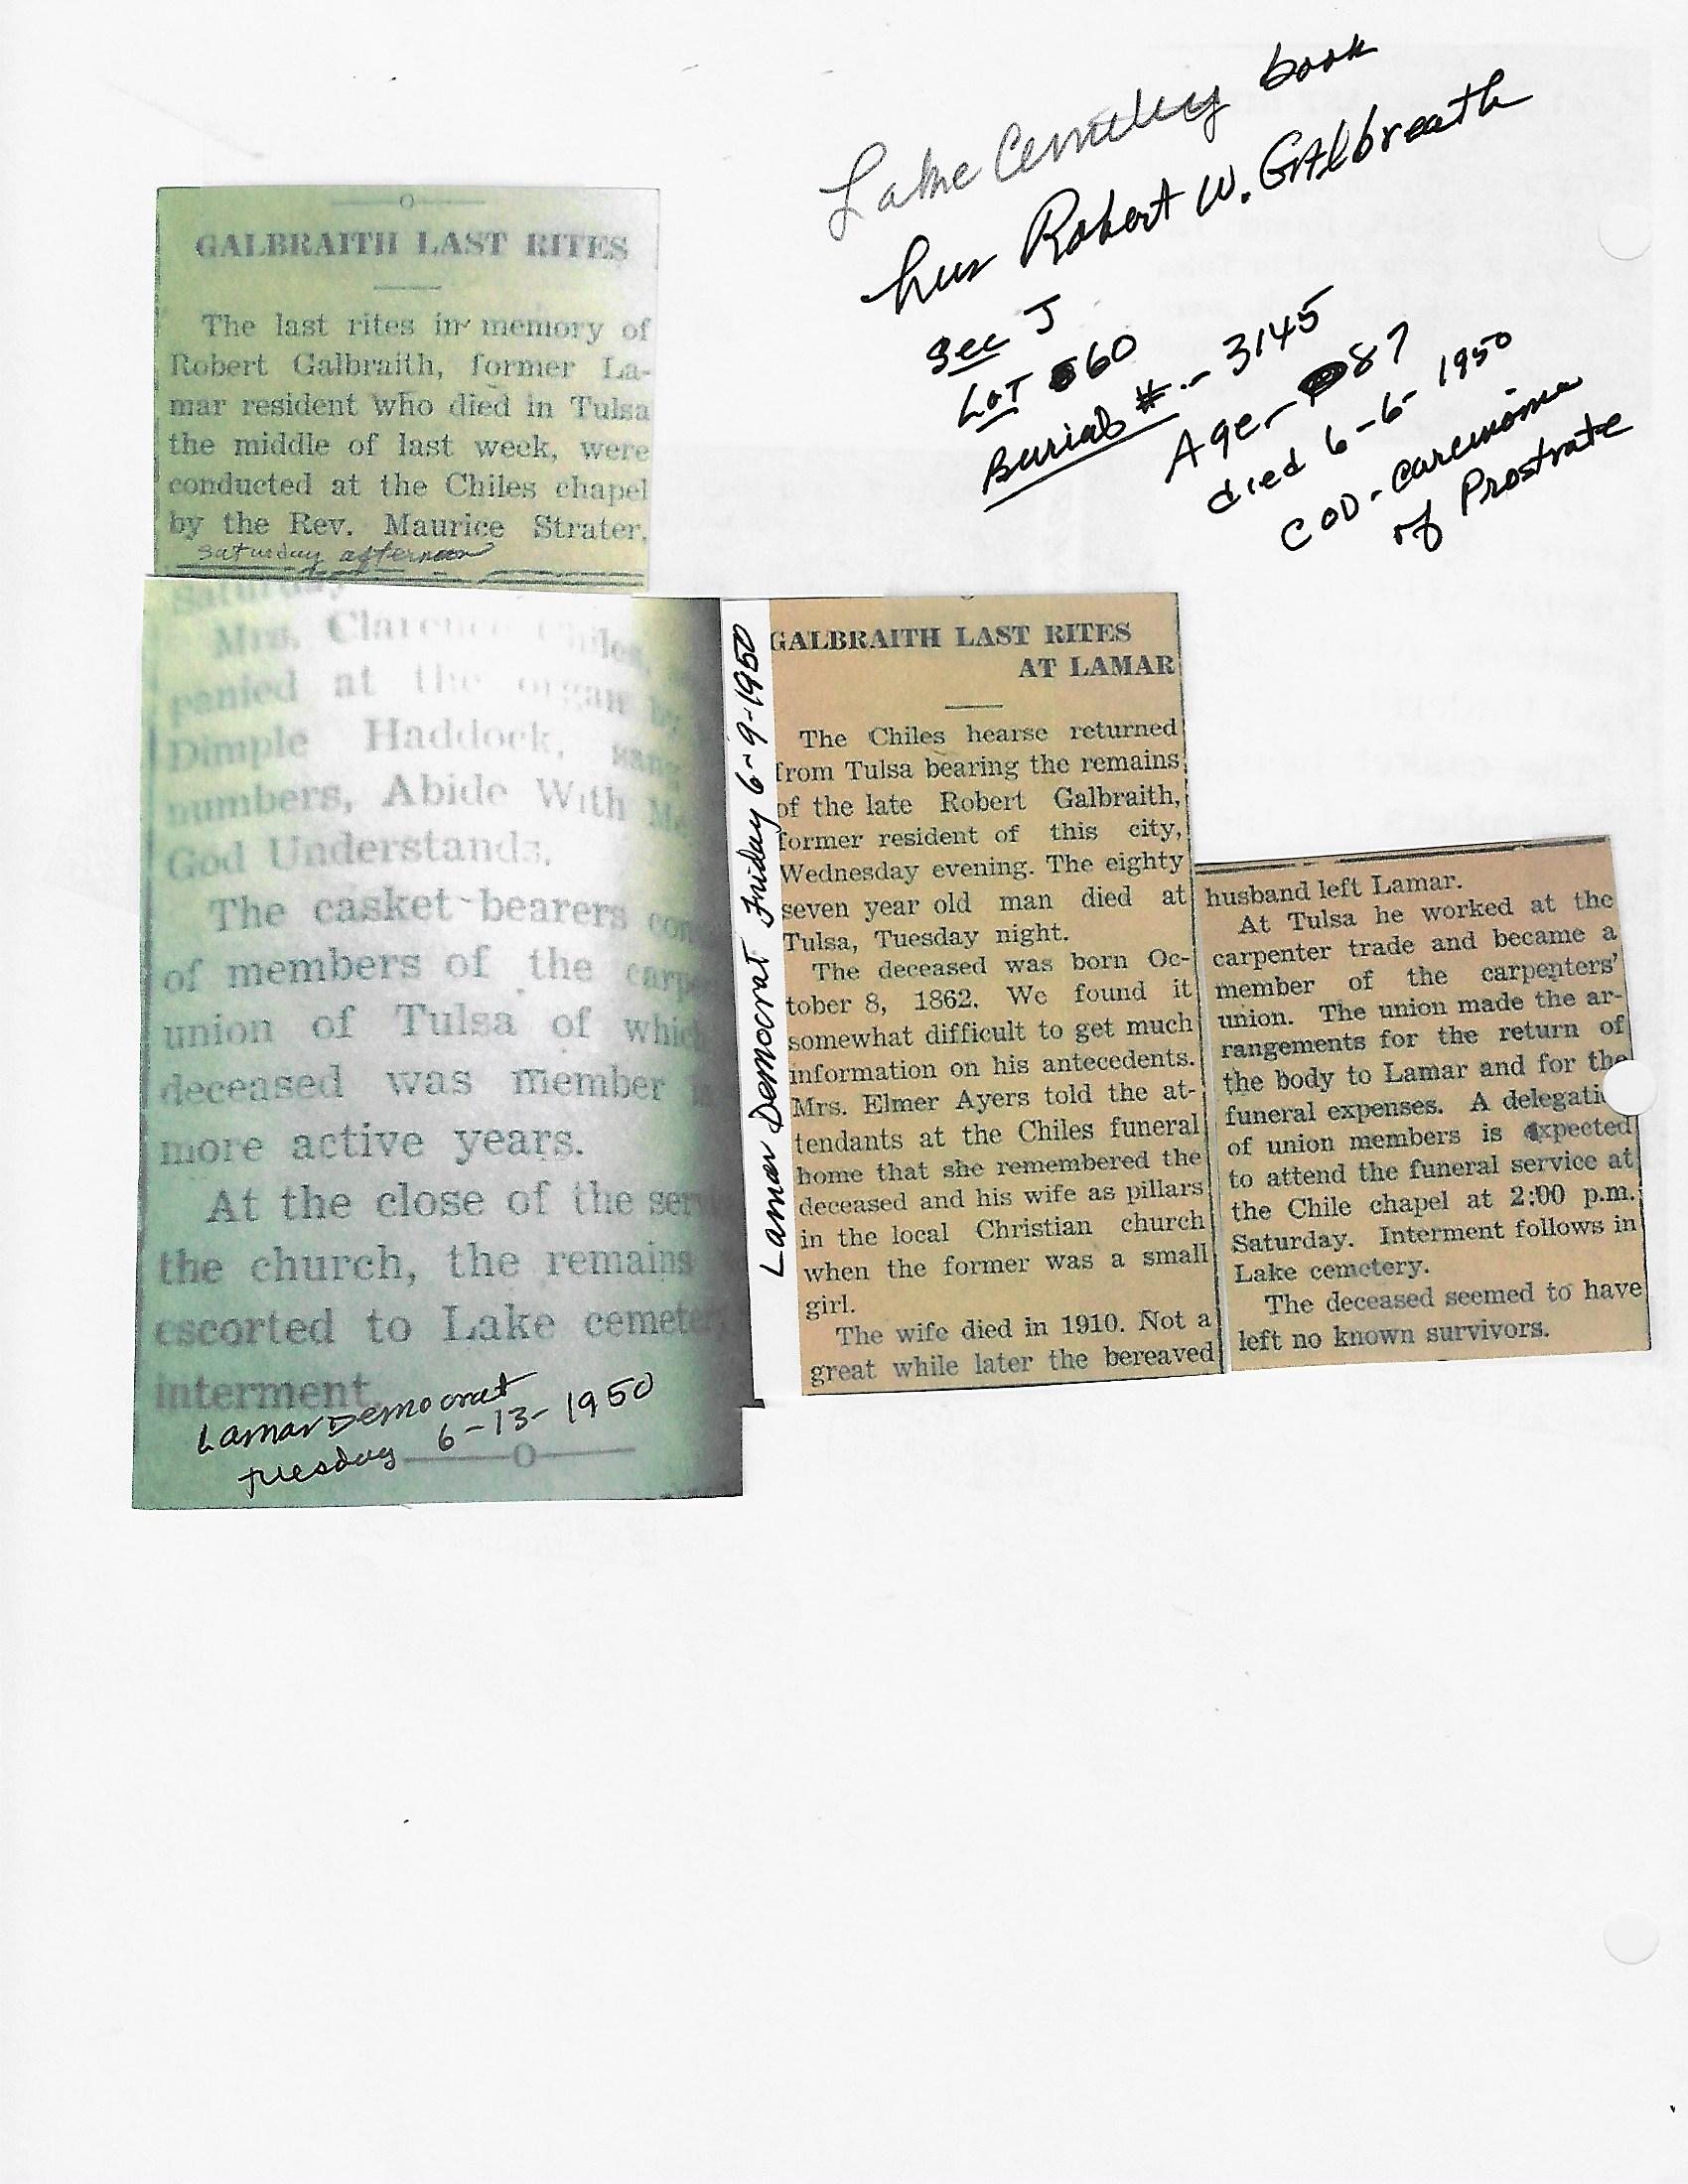 Lake Cemetery book
has Robert W. GAlbreath
Sec J
LOT 60
Burial # - 3145
Age - 87
died 6-6-1950
COD - carcinoma
of Prostrate
GALBRAITH LAST RITES
The last rites in memory of
Robert Galbraith, former La-
mar resident who died in Tulsa
the middle of last week, were
conducted at the Chiles chapel
by the Rev. Maurice Strater.
Saturday afternoon
Saturday
Mrs. Clarence Chiles,
panied at the organ by
Dimple Haddock, sang
numbers, Abide With Me
God Understands.
The casket-bearers con
of members of the carpe
union of Tulsa of which
deceased was member
more active years.
At the close of the serv
the church, the remains
escorted to Lake cemete
interment
Lamar Democrat
Tuesday 6-13-1950
Lamar Democrat Friday 6-9-1950
GALBRAITH LAST RITES
AT LAMAR
The Chiles hearse returned
from Tulsa bearing the remains
of the late Robert Galbraith,
former resident of this city,
Wednesday evening. The eighty
seven year old man died at
Tulsa, Tuesday night.
The deceased was born Oc-
tober 8, 1862. We found it
somewhat difficult to get much
information on his antecedents.
Mrs. Elmer Ayers told the at-
tendants at the Chiles funeral
home that she remembered the
deceased and his wife as pillars
in the local Christian church
when the former was a small
girl.
The wife died in 1910. Not a
great while later the bereaved
husband left Lamar.
At Tulsa he worked at the
carpenter trade and became a
member of the carpenters'
union. The union made the ar-
rangements for the return of
the body to Lamar and for the
funeral expenses. A delegati
of union members is expected
to attend the funeral service at
the Chile chapel at 2:00 p.m.
Saturday. Interment follows in
Lake cemetery.
The deceased seemed to have
left no known survivors.